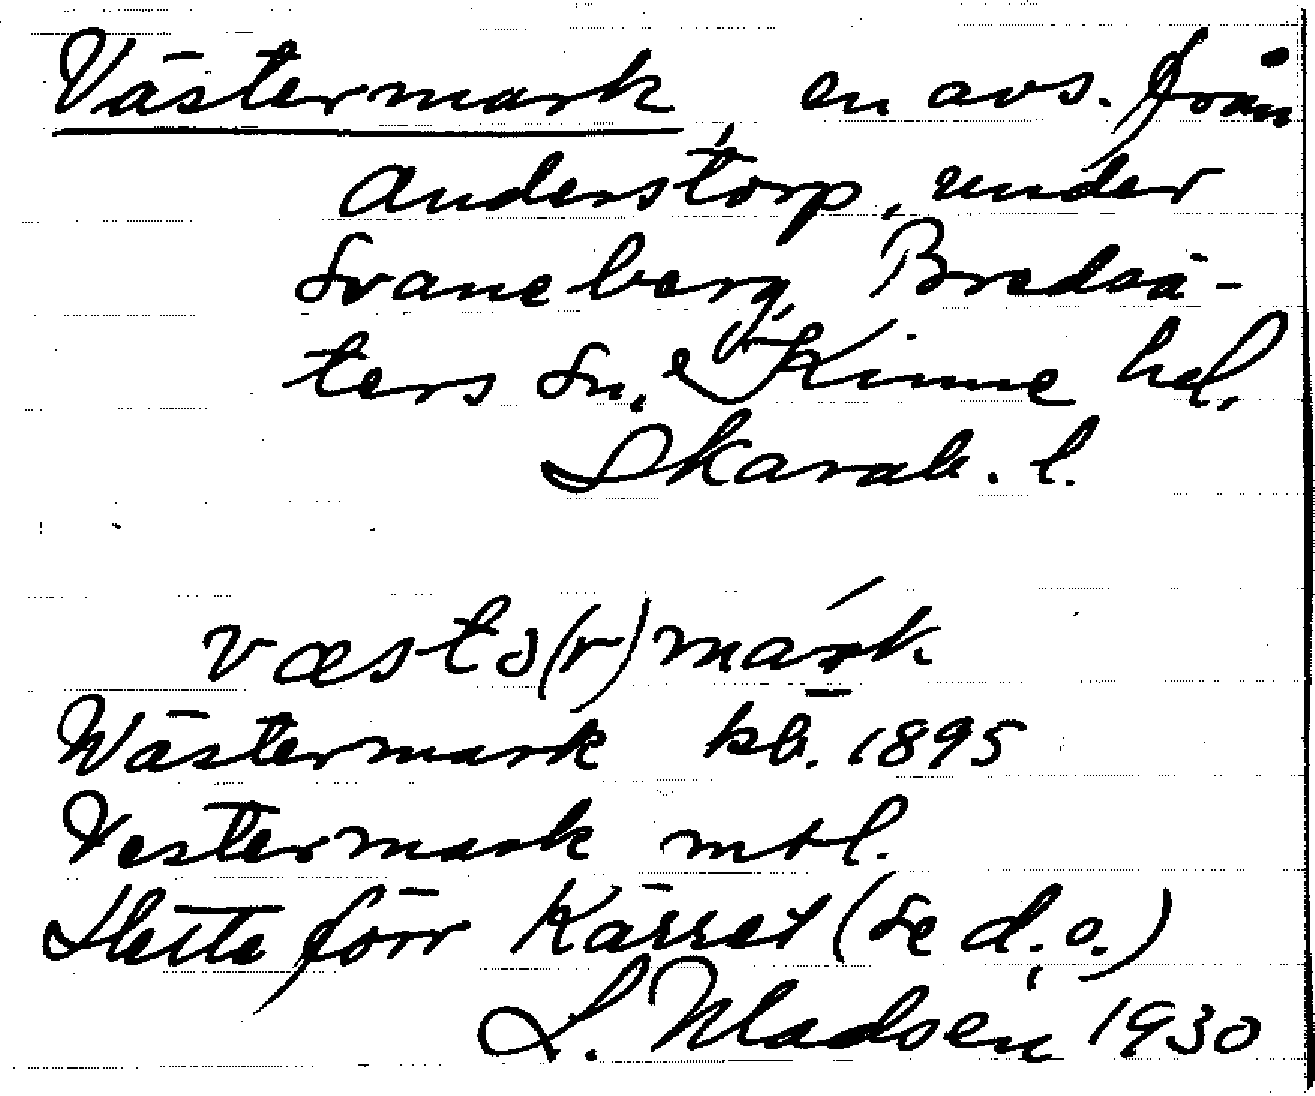 Västermark en avs. från
Anderstorp, under
Svaneberg, Bredsä-
ters sn, Kinne hd,
Skarab. l.
væstə(r)márk
Wästermark kb. 1895
Vestermark mtl.
Hette förr Kärret (se d. o.)
L. Madsén 1930